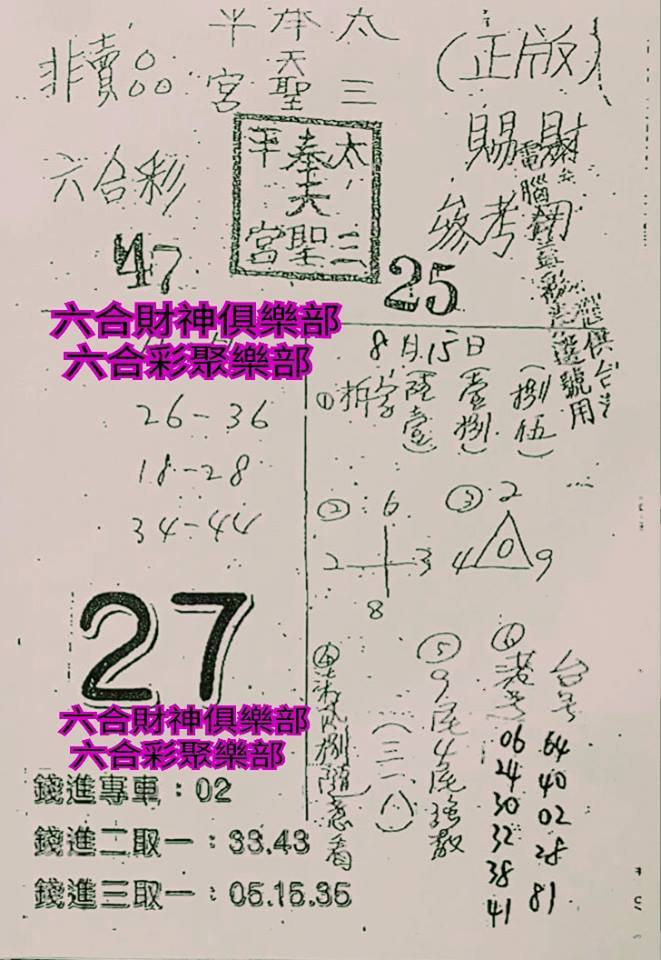 非賣品
太三
奉天聖
平宮
(正版)
六合彩
太三
奉天聖
平宮
賜財
參考用
47
25
六合財神俱樂部
六合彩聚樂部
26-36
18-28
34-44
27
六合財神俱樂部
六合彩聚樂部
錢進專車:02
錢進二取一:33.43
錢進三取一:05.15.35
8月15日
①拆字(陸壹)(壹捌)(捌伍)
② 6
2 3
8
③ 2
4 0 9
隨意看
(三一八)
⑤9尾4尾強數
⑥
台号
06 64
24 40
30 02
32 28
38 81
41